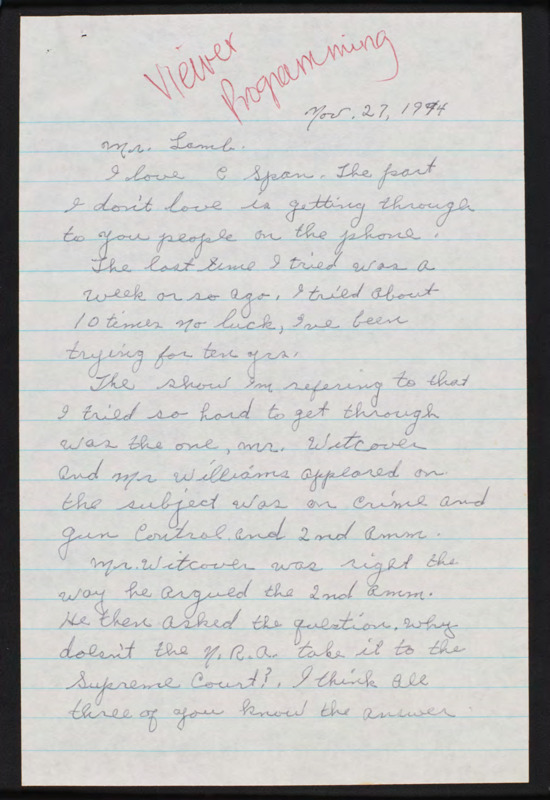 Viewer
Programming
Nov. 27, 1994
Mr. Lamb.
I love C Span. The part
I don't love is getting through
to you people on the phone.
The last time I tried was a
week or so ago. I tried about
10 times no luck, I've been
trying for ten yrs.
The show I'm refering to that
I tried so hard to get through
was the one, Mr. Witcover
and Mr Williams appeared on
the subject was on crime and
gun control and 2nd amm.
Mr. Witcover was right the
way he argued the 2nd amm.
He then asked the question, why
doesn't the N.R.A. take it to the
Supreme Court?. I think all
three of you know the answer